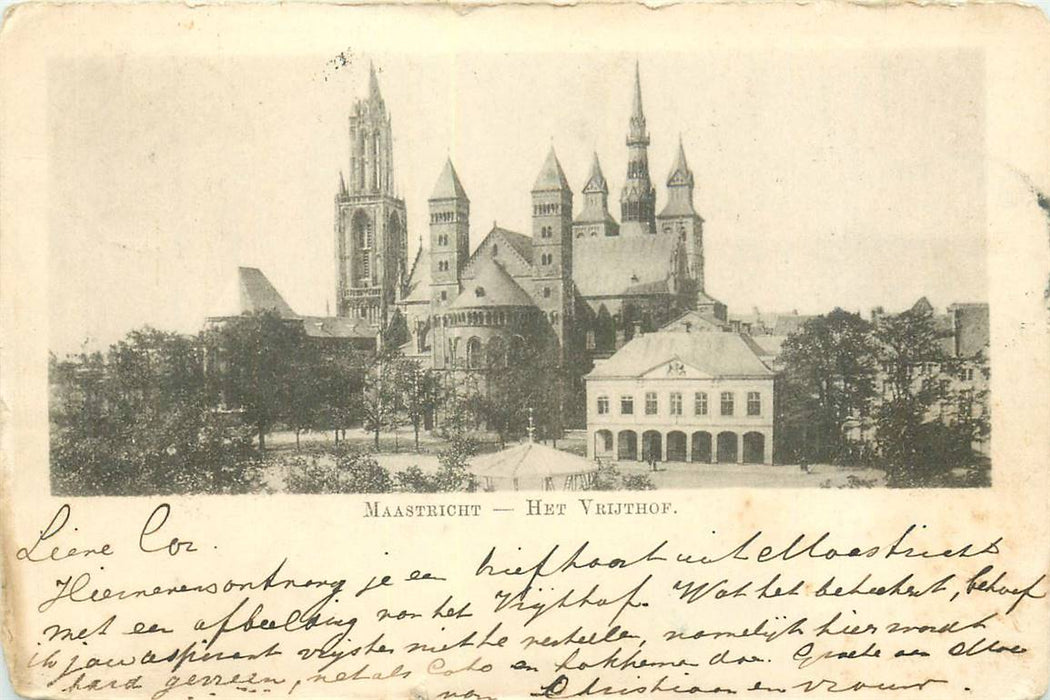 MAASTRICHT — HET VRIJTHOF.
Lieve Cor.
Hiernevens ontvang je een briefkaart uit Maastricht
met een afbeelding van het Vrijthof. Wat het beteekent, behoef
ik jou aspirant vrijster niet te vertellen, namelijk hier wordt
hard gevreeën, net als Coto en Fokkema doe. Groete aan Moe
van Christiaan en vrouw.